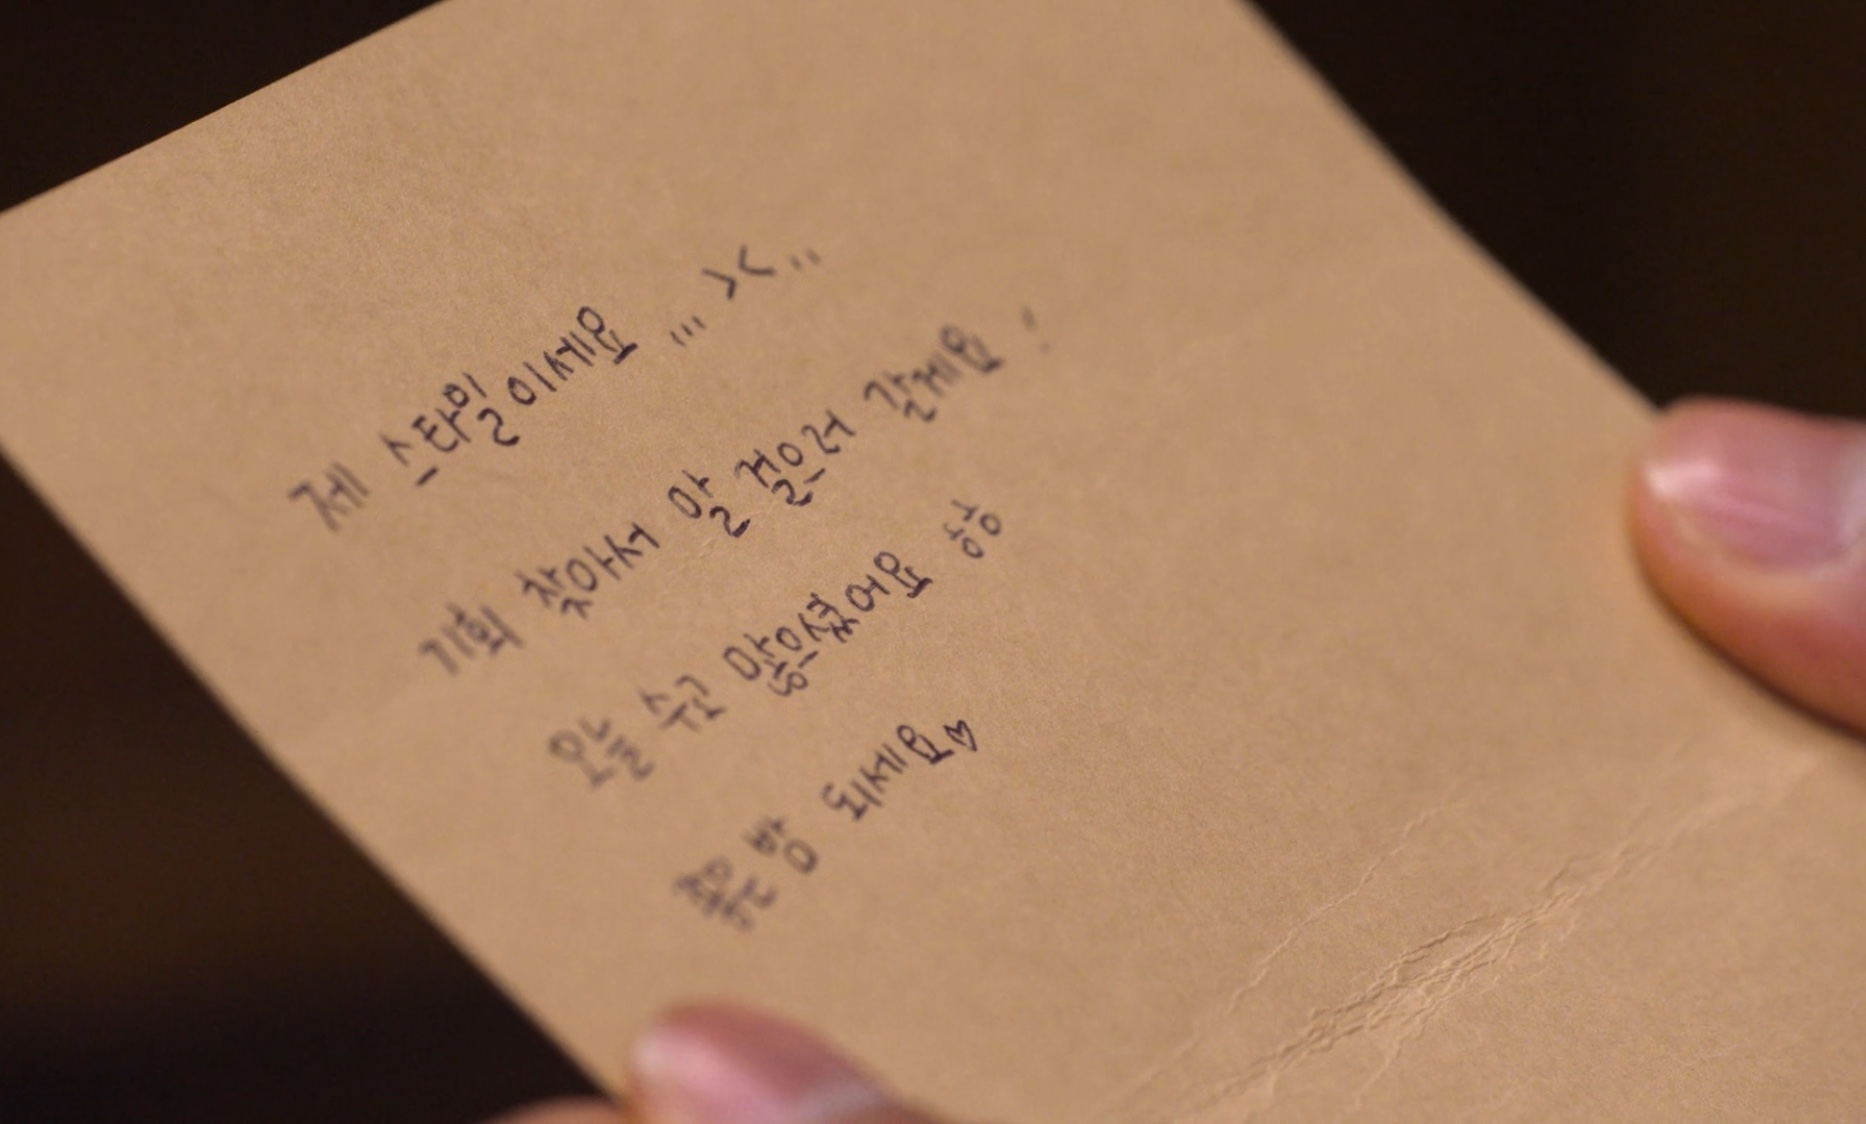 제 스타일이세요 ... >< ..
기회 찾아서 말 걸으러 갈게요!
오늘 수고 많으셨어요 흐흐
좋은 밤 되세요♡